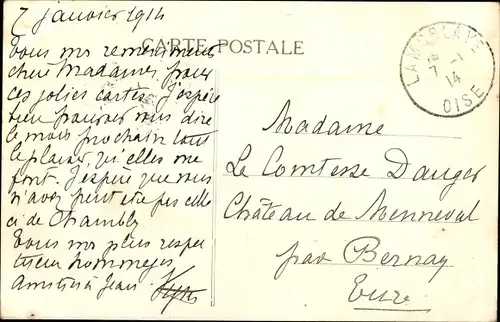 7 janvier 1914
CARTE POSTALE
Tous mes remerciments
chère Madame, pour
ces jolies cartes. J'espère
bien pouvoir vous dire
le mois prochain tout
le plaisir, qu'elles me
font. J'espère que vous
n'avez peut être pas celle
ci de Chambly
Tous mes plus respec
tueux hommages
Amitiés à Jean
LAMORLAYE
7 -1
14
OISE
Madame
La Comtesse Dauger
Château de Menneval
par Bernay
Eure